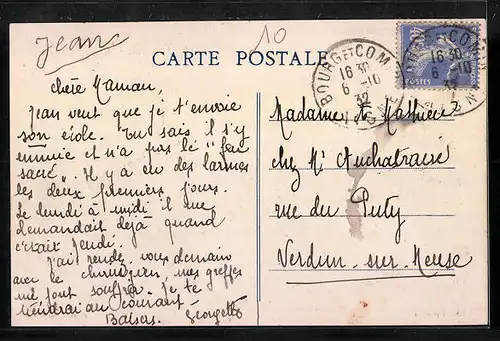 Jean
10
CARTE POSTALE
BOURG ET COM
16 30
6 -10
32
POSTES
Chère Maman,
Jean veut que je t'envoie
son école. Tu sais il s'y
ennuie et n'a pas le "feu
sacré". Il y a eu des larmes
les deux premiers jours.
Le lundi à midi il me
demandait déjà quand
c'était Jeudi.
J'ai rendez-vous demain
avec le chirurgien, mes greffes
me font souffrir. Je te
tiendrai au courant.
Baisers. Georgette
Madame L. Mathieu
chez Mr
rue du Puty
Verdun-sur-Meuse